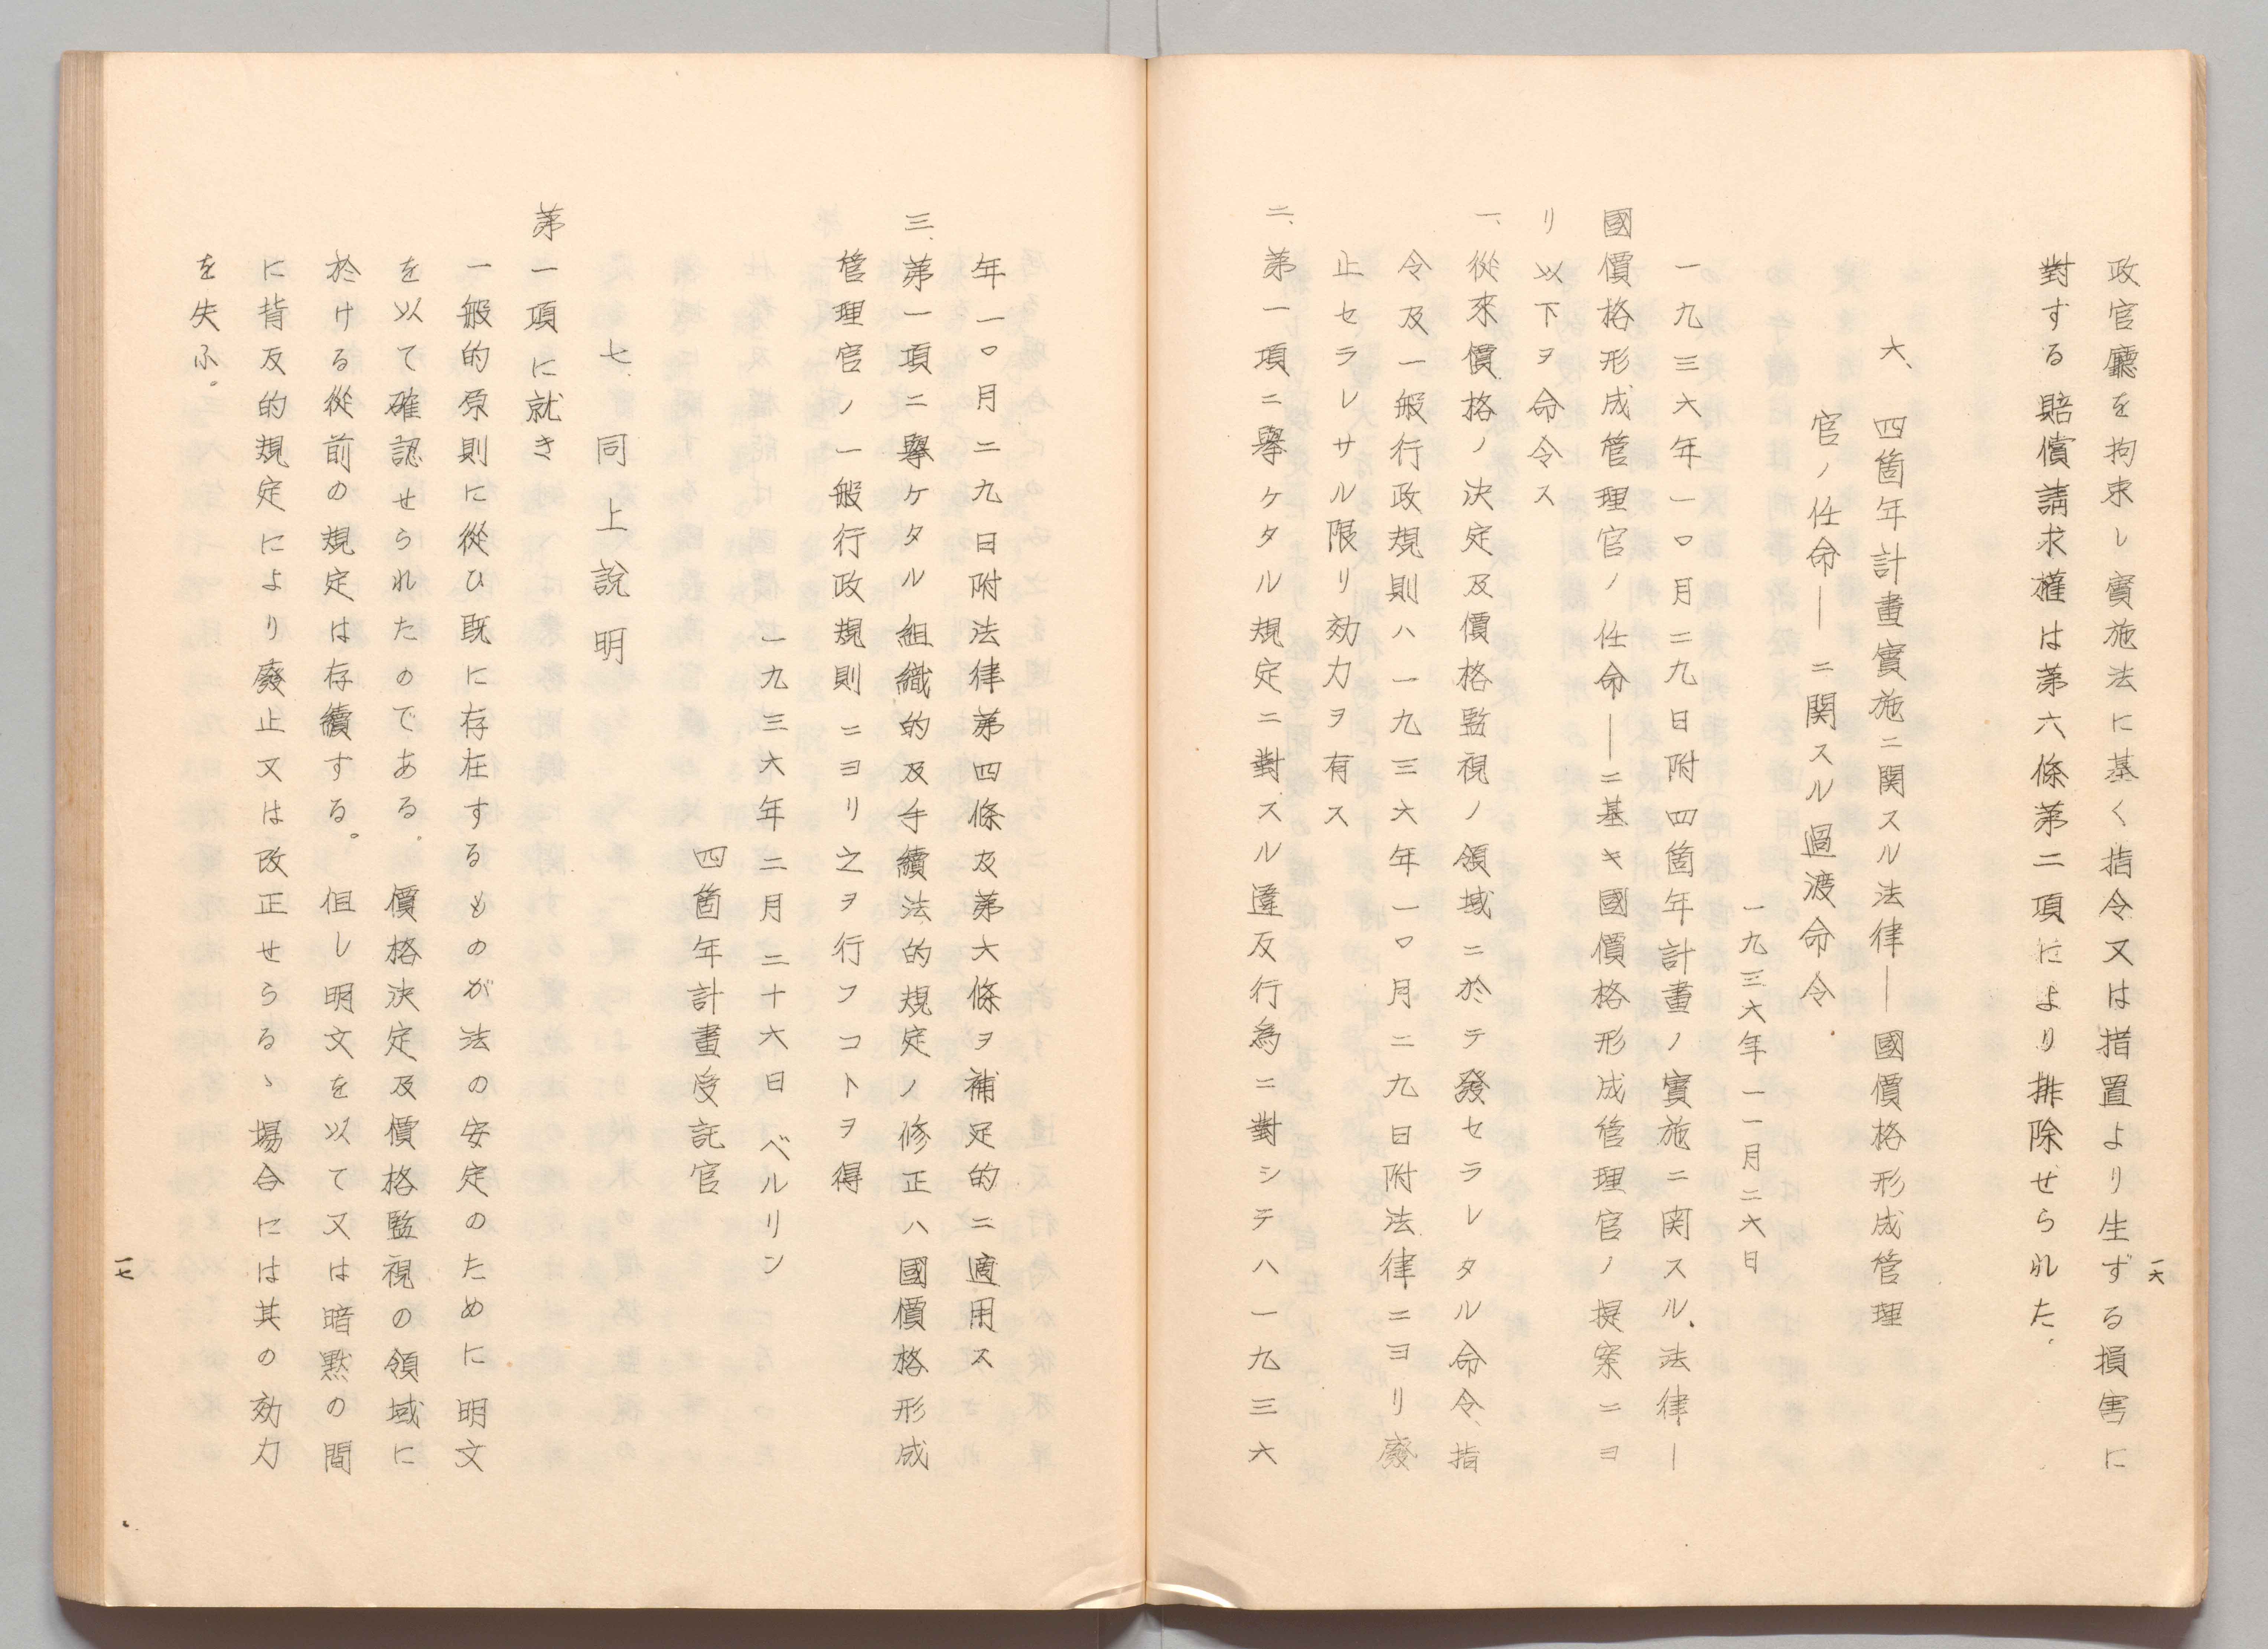 政官廳を拘束し實施法に基く指令又は措置より生ずる損害に
對する賠償請求權は第六條第二項により排除せられた.
六、四箇年計畫實施ニ関スル法律―國價格形成管理
官ノ任命―ニ関スル過渡命令.
一九三六年一一月二六日
一九三六年一〇月二九日附四箇年計畫ノ實施ニ関スル、法律―
國價格形成管理官ノ任命―ニ基キ國價格形成管理官ノ提案ニヨ
リ以下ヲ命令ス
一、從來價格ノ決定及價格監視ノ領域ニ於テ發セラレタル命令、指
令及一般行政規則ハ一九三六年一〇月二九日附法律ニヨリ廢
止セラレサル限リ効力ヲ有ス
二、第一項ニ擧ケタル規定ニ對スル違反行為ニ對シテハ一九三六
一六
年一〇月二九日附法律第四條及第六條ヲ補足的ニ適用ス
三、第一項ニ擧ケタル組織的及手續法的規定ノ修正ハ國價格形成
管理官ノ一般行政規則ニヨリ之ヲ行フコトヲ得
一九三六年二月二十六日 ベルリン
四箇年計畫受託官
七、同上說明
第一項に就き
一般的原則に從ひ既に存在するものが法の安定のために明文
を以て確認せられたのである. 價格決定及價格監視の領域に
於ける從前の規定は存續する。 但し明文を以て又は暗黙の間
に背反的規定により廢止又は改正せらるゝ場合には其の効力
を失ふ。
一七